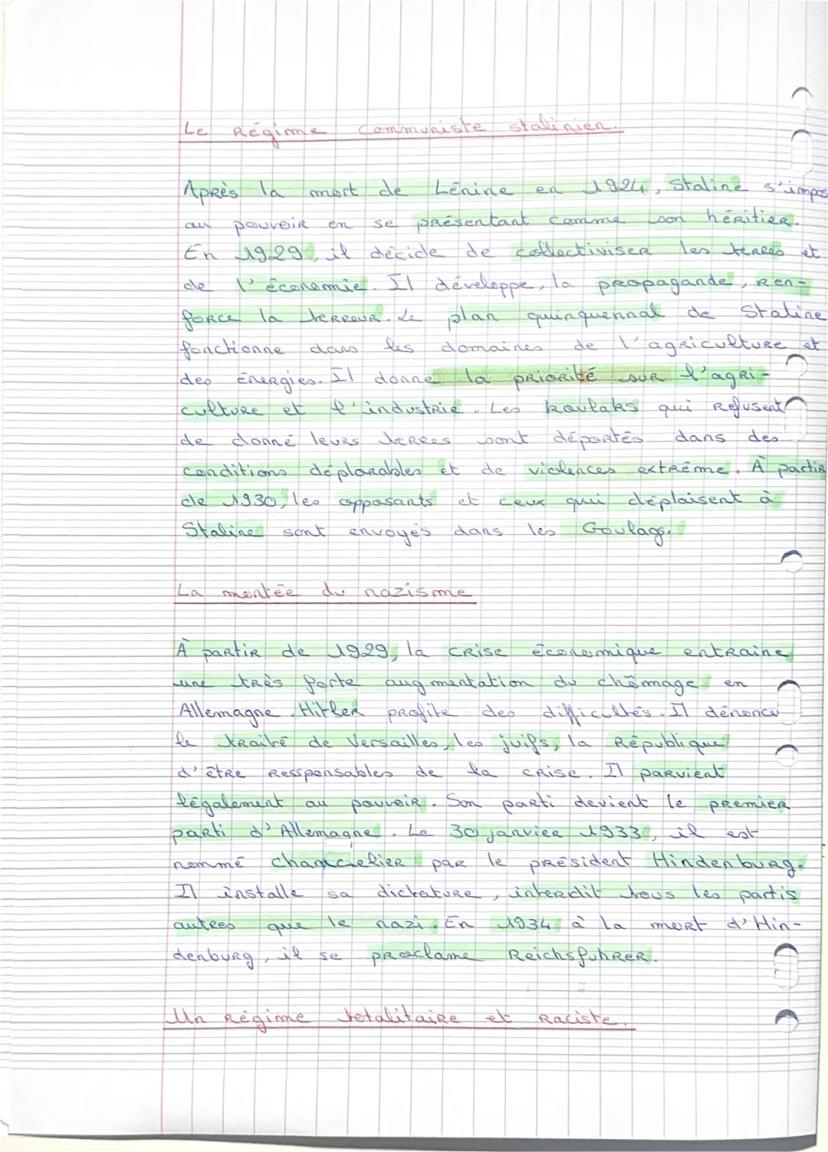 Le Régime communiste stalinien.
Après la mort de Lénine en 1924, Staline s'impos
au pouvoir en se présentant comme son héritier.
En 1929, il décide de collectiviser les terres et
de l'économie. Il développe, la propagande, ren-
force la terreur. Le plan quinquennal de Staline
fonctionne dans les domaines de l'agriculture et
des énergies. Il donne la priorité sur l'agri-
culture et l'industrie. Les koulaks qui refusent
de donné leurs terres sont déportés dans des
conditions déplorables et de violences extrême. À partir
de 1930, les opposants et ceux qui déplaisent à
Staline sont envoyés dans les Goulags.
La montée du nazisme
À partir de 1929, la crise économique entraine
une très forte augmentation du chômage en
Allemagne. Hitler profite des difficultés. Il dénonce
le traité de Versailles, les juifs, la République
d'être ressponsables de la crise. Il parvient
légalement au pouvoir. Son parti devient le premier
parti d'Allemagne. Le 30 janvier 1933, il est
nommé chancielier par le président Hindenburg.
Il installe sa dictature, interdit tous les partis
autres que le nazi. En 1934 à la mort d'Hin-
denburg, il se proclame Reichsfuhrer.
Un Régime totalitaire et raciste.